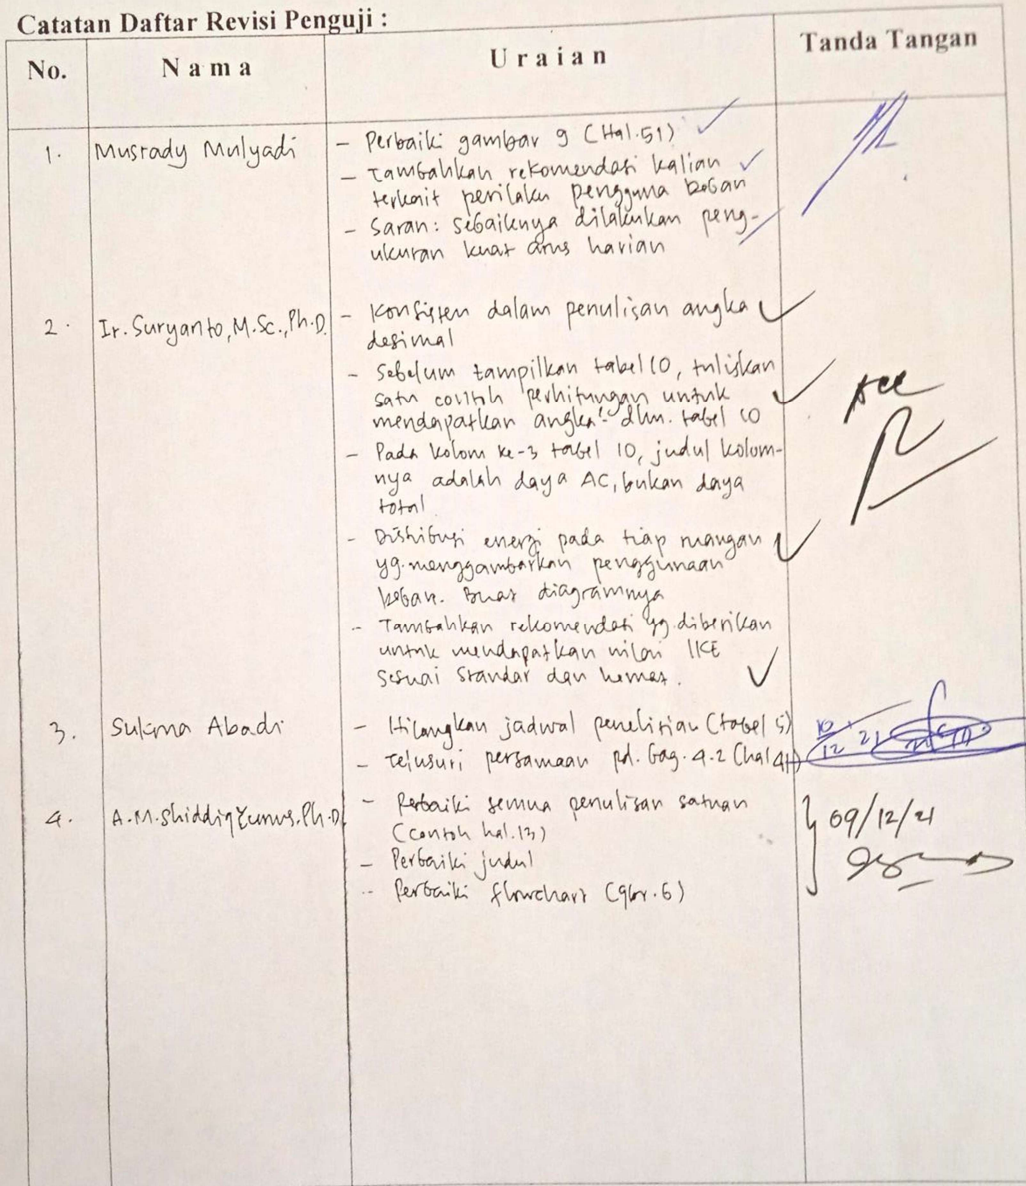 Catatan Daftar Revisi Penguji :
No. Nama Uraian Tanda Tangan
1. Musrady Mulyadi - Perbaiki gambar 9 (Hal.51)
- Tambahkan rekomendasi kalian
terkait perilaku pengguna beban
- Saran: sebaiknya dilakukan peng-
ukuran kuat arus harian
2. Ir. Suryanto, M.Sc., Ph.D. - Konsisten dalam penulisan angka
desimal
- Sebelum tampilkan tabel 10, tuliskan
satu contoh perhitungan untuk
mendapatkan angka² dlm. tabel 10
- Pada kolom ke-3 tabel 10, judul kolom-
nya adalah daya AC, bukan daya
total
- Distribusi energi pada tiap ruangan
yg. menggambarkan penggunaan
beban. Buat diagramnya
- Tambahkan rekomendasi yg. diberikan
untuk mendapatkan nilai IKE
sesuai standar dan hemat.
Acc
3. Sukma Abadi - Hilangkan jadwal penelitian (tabel 5)
- Telusuri persamaan pd. Bag. 4.2 (hal 41)
10/12 21
4. A.M. Shiddiq Yunus, Ph.D. - Perbaiki semua penulisan satuan
(contoh hal.13)
- Perbaiki judul
- Perbaiki flowchart (gbr.6)
09/12/21